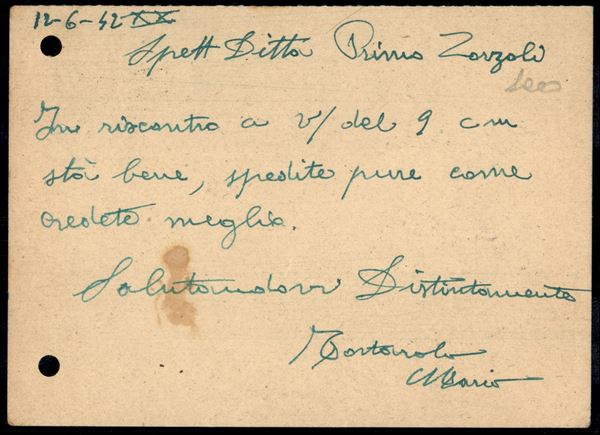 12-6-42 XX
Spett Ditta Primo Zorzoli
In riscontro a v/ del 9 cm
stà bene, spedite pure come
credete meglio.
Salutandovi Distintamente
Tortarolo
Mario